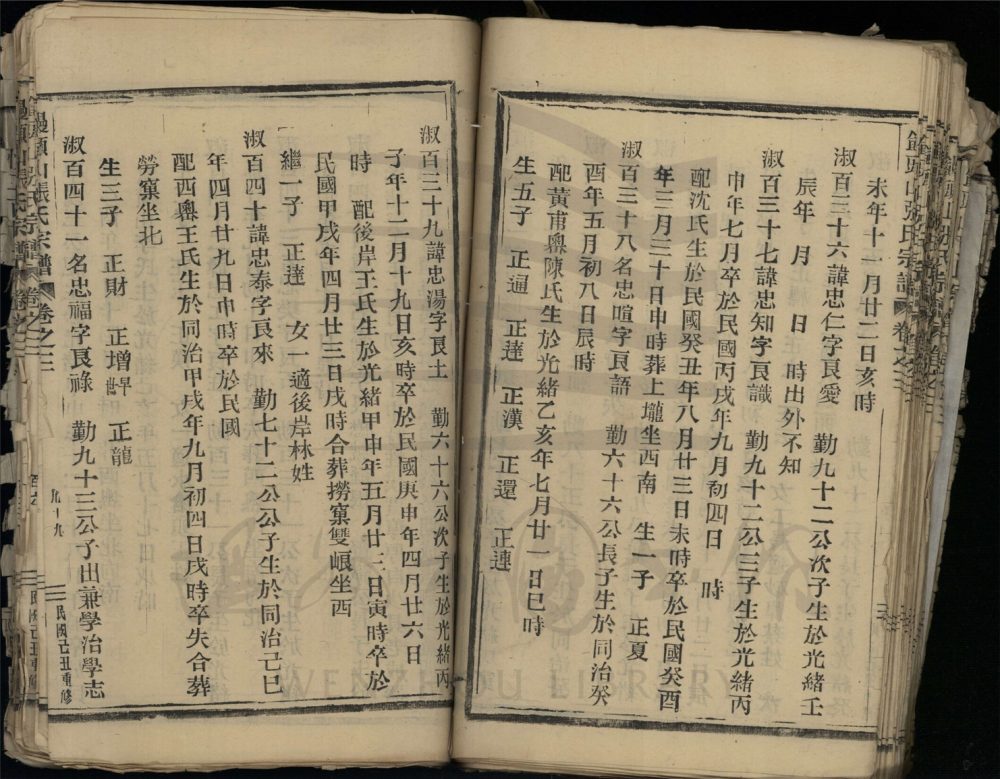 未年十一月廿二日亥時
淑百三十六諱忠仁字良愛 勤九十二公次子生於光緒壬
辰年 月 日 時出外不知
淑百三十七諱忠知字良識 勤九十二公三子生於光緒丙
申年七月卒於民國丙戌年九月初四日 時
配沈氏生於民國癸丑年八月廿三日未時卒於民國癸酉
年三月三十日申時葬上壠坐西南 生一子 正夏
淑百三十八名忠喧字良語 勤六十六公長子生於同治癸
酉年五月初八日辰時
配黃甫嶴陳氏生於光緒乙亥年七月廿一日巳時
生五子 正通 正達 正漢 正還 正連
淑百三十九諱忠湯字良土 勤六十六公次子生於光緒丙
子年十二月十九日亥時卒於民國庚申年四月廿六日
時 配後岸王氏生於光緒甲申年五月廿三日寅時卒於
民國甲戌年四月廿三日戌時合葬撈窠雙峎坐西
繼一子 正達 女一適後岸林姓
淑百四十諱忠泰字良來 勤七十二公公子生於同治己巳
年四月廿九日申時卒於民國
配西嶴王氏生於同治甲戌年九月初四日戌時卒失合葬
勞窠坐北
生三子 正財 正增早世 正龍
淑百四十一名忠福字良祿 勤九十三公子出兼學治學志
饅頭山張氏宗譜 卷之三
民國己丑重修